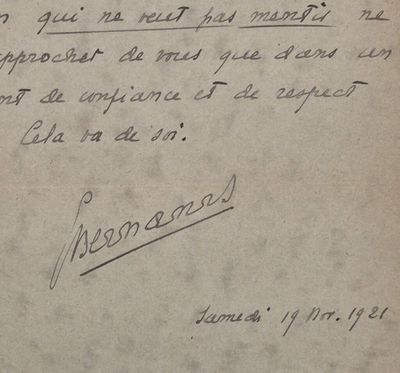 qui ne veut pas mentir ne
approcher de vous que dans un
nt de confiance et de respect
Cela va de soi.
GBernanos
Samedi 19 Nov. 1921